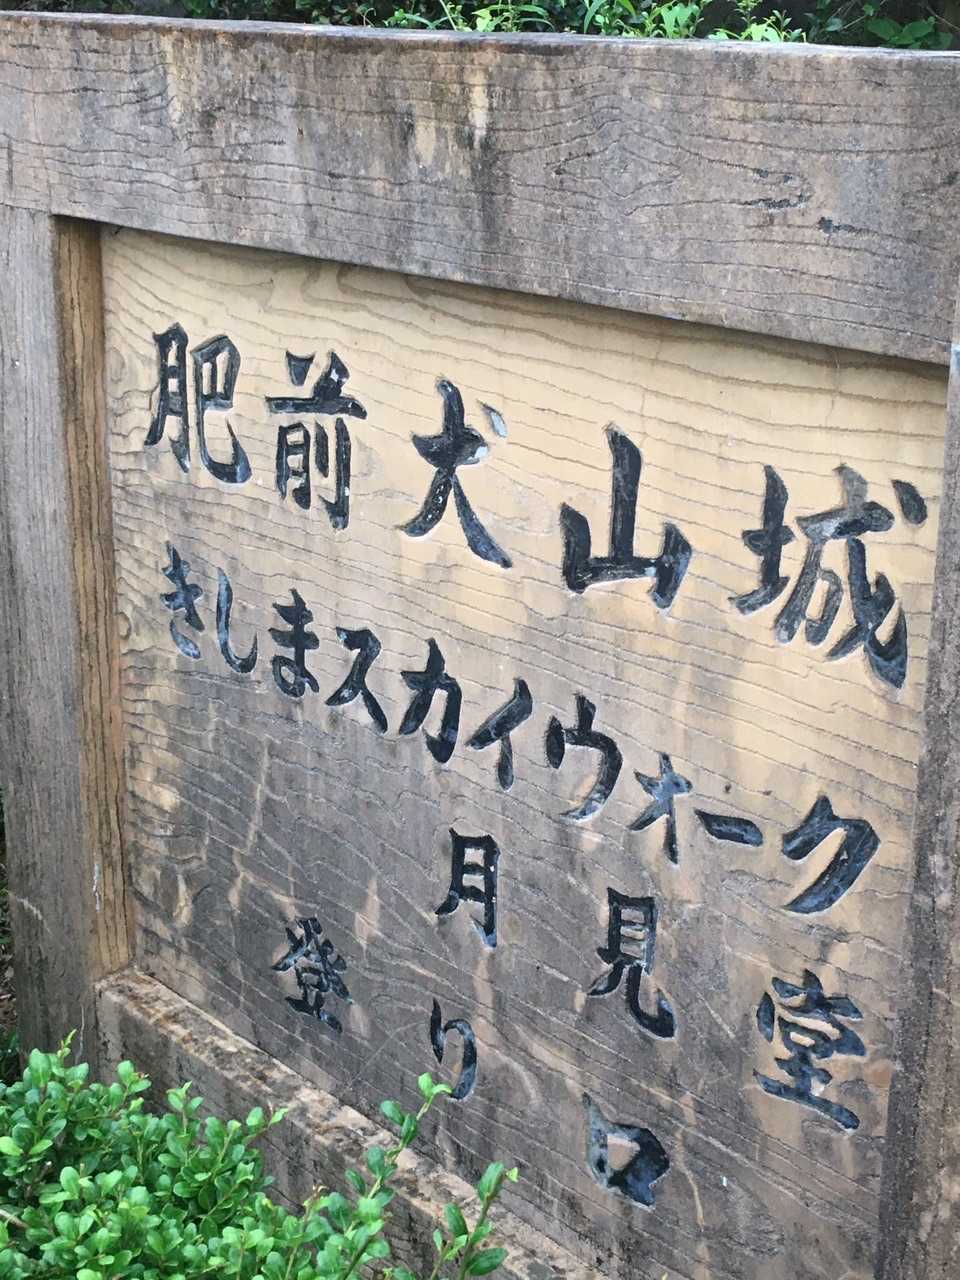 肥前犬山城
きしまスカイウォーク
月見堂
登り口